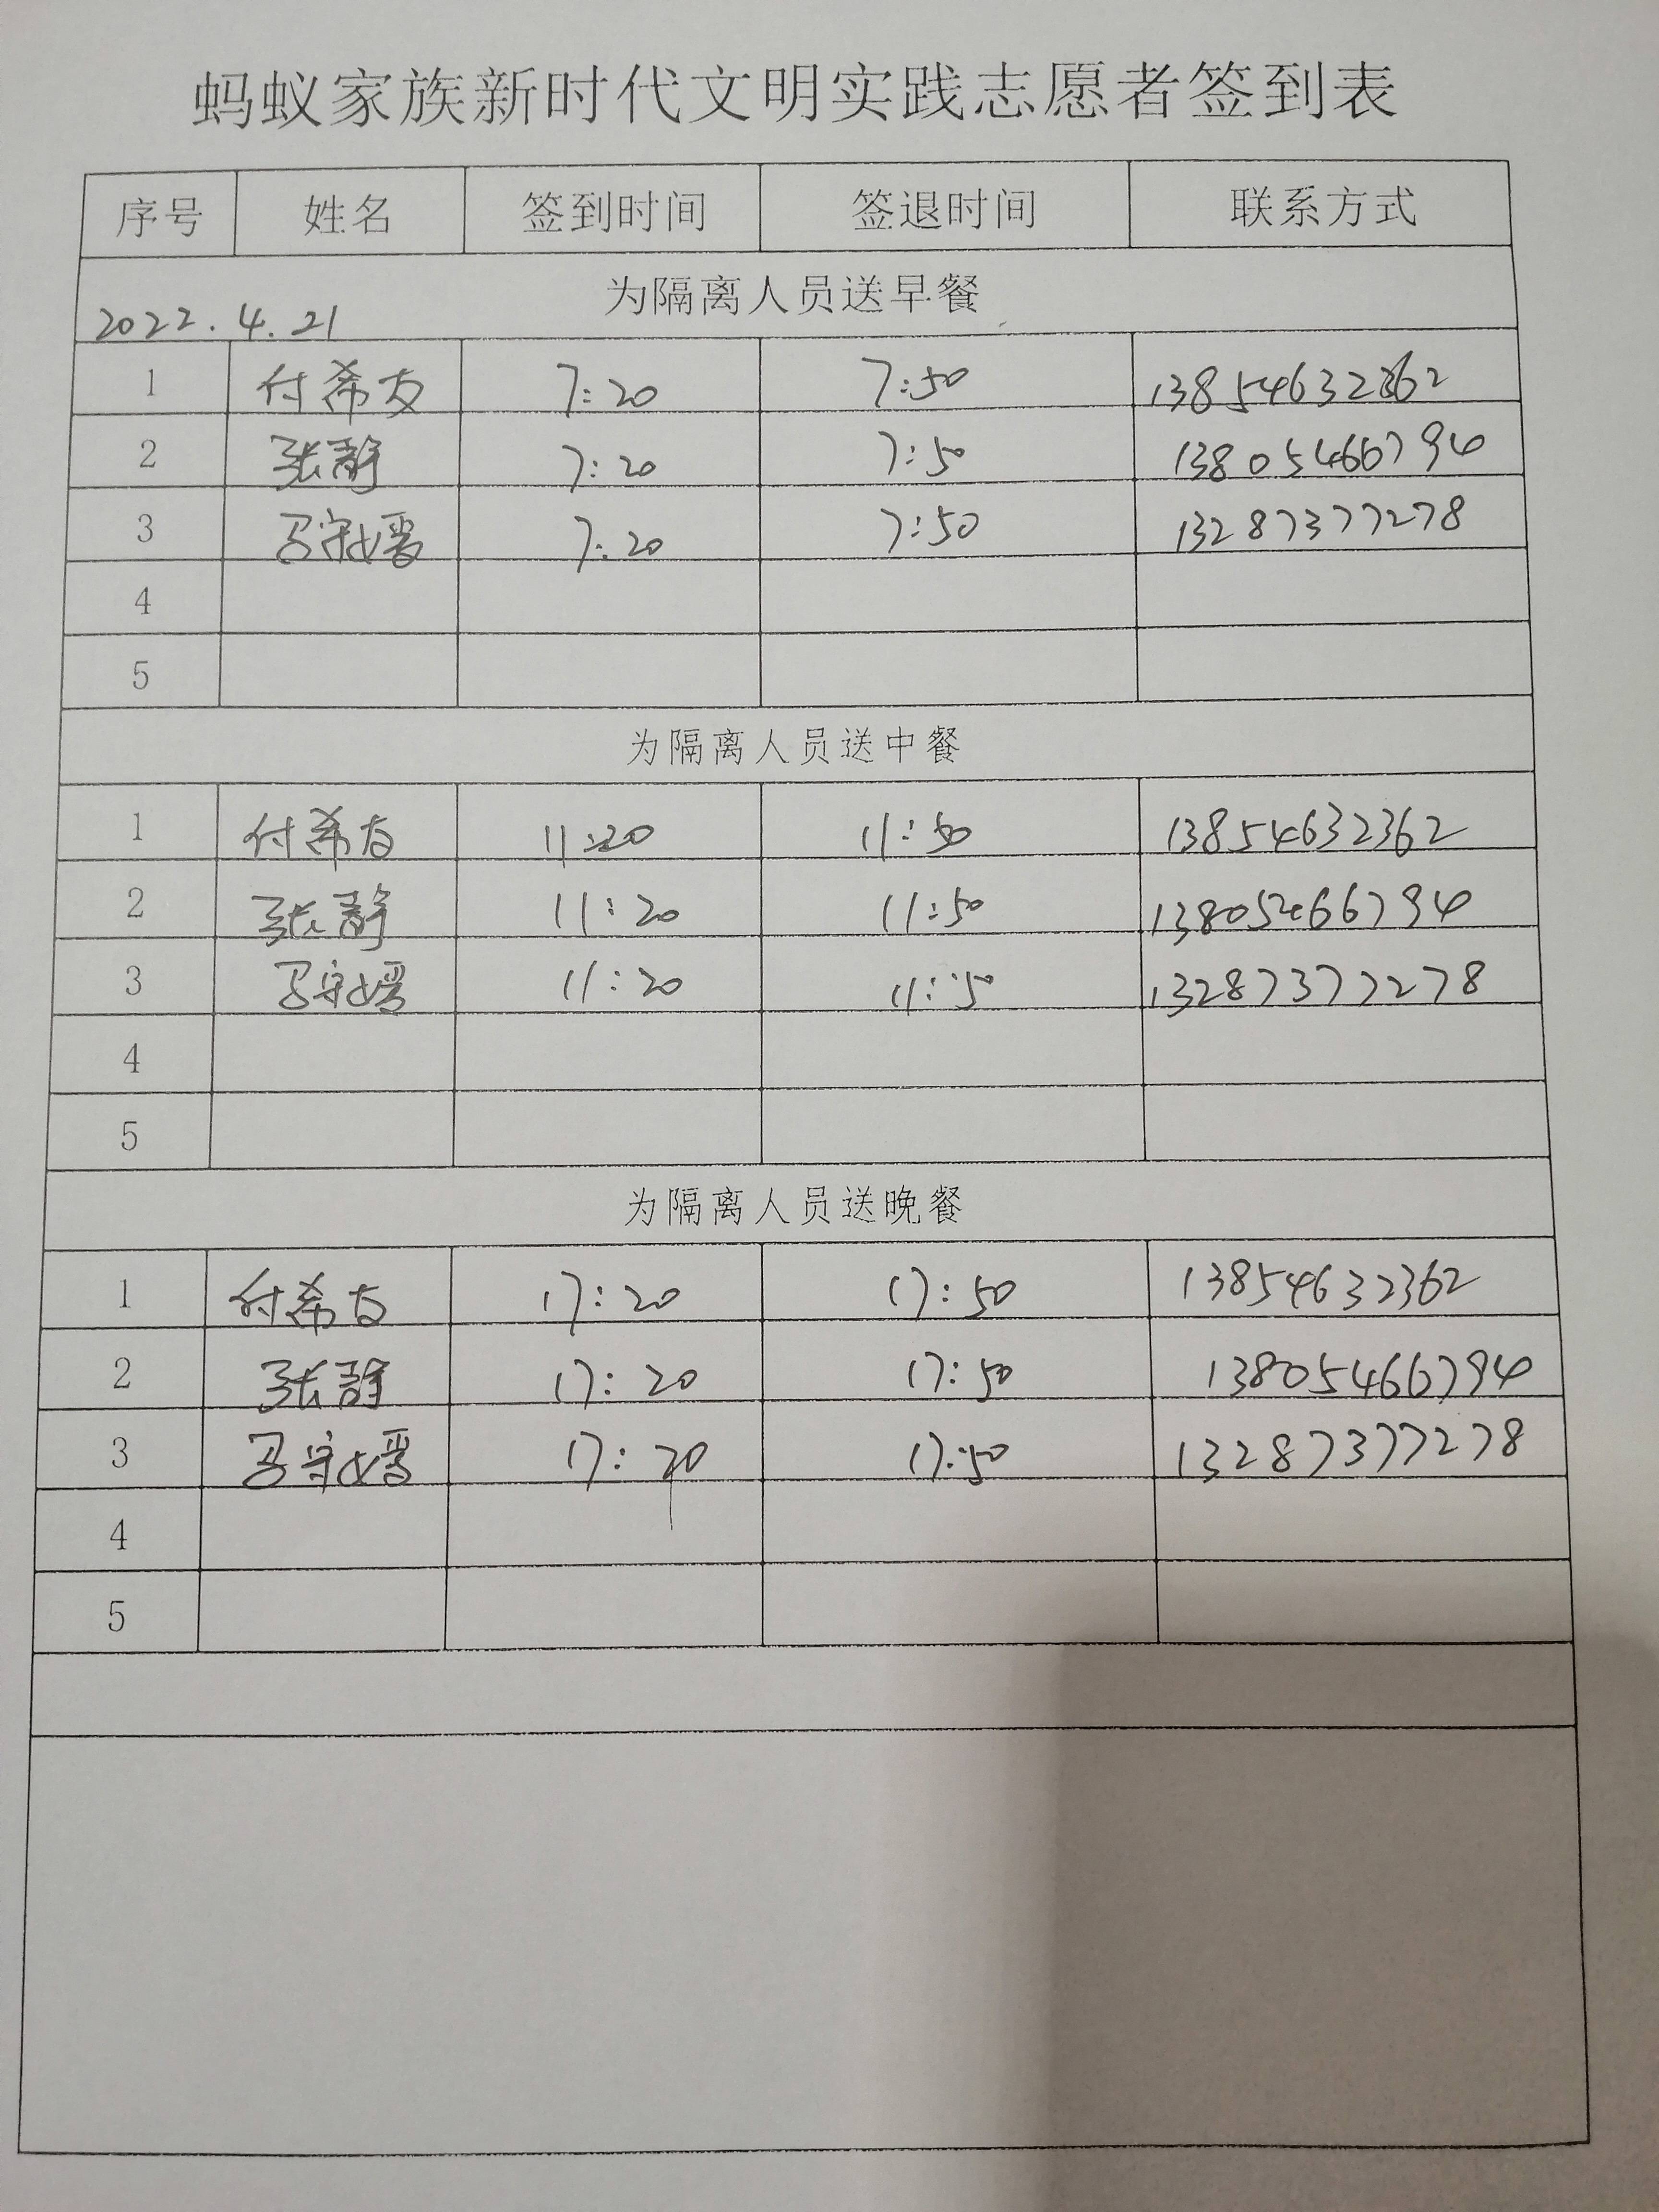 蚂蚁家族新时代文明实践志愿者签到表
序号 姓名 签到时间 签退时间 联系方式
为隔离人员送早餐
2022.4.21
1 付希友 7:20 7:50 13854632362
2 张静 7:20 7:50 13805466794
3 7:20 7:50 13287377278
4
5
为隔离人员送中餐
1 付希友 11:20 11:50 13854632362
2 张静 11:20 11:50 13805466794
3 11:20 11:50 13287377278
4
5
为隔离人员送晚餐
1 付希友 17:20 17:50 13854632362
2 张静 17:20 17:50 13805466794
3 17:20 17:50 13287377278
4
5